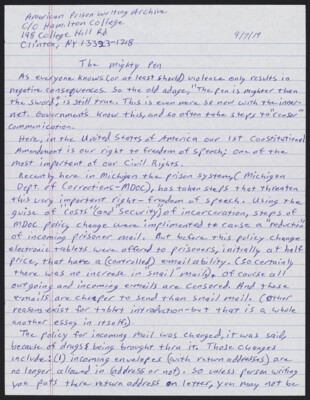 American Prison Writing Archive
C/O Hamilton College
198 College Hill Rd
Clinton, NY 13323-1218
9/7/19
The Mighty Pen
As everyone knows (or at least should) violence only results in
negative consequences. So the old adage, "The pen is mighter than
the sword", is still true. This is even more so now with the inner-
net. Governments know this, and so often take steps to "censor"
communication.
Here, in the United States of America our 1st Constitutional
Amendment is our right to freedom of speech; one of the
most important of our Civil Rights.
Recently here in Michigan the prison system (Michigan
Dept. of Corrections - MDOC), has taken steps that threaten
this very important right - freedom of speech. Using the
guise of "costs" (and security) of incarceration, steps of
MDOC policy change were implimented to cause a "reduction"
of incoming prisoner mail. But before this policy change
electronic tablets were offered to prisoners, initially at half
price, that have a (controlled) email ability. (So certainly
there was no increase in "snail" mail). Of course all
outgoing and incoming emails are censored. And those
emails are cheaper to send than snail mail. (Other
reasons exist for tablet introduction - but that is a whole
another essay in itself.)
The policy for incoming mail was changed, it was said,
because of drugs being brought thru it. Those changes
include: (1) incoming envelopes (with return addresses) are
no longer allowed in (address or not). So unless person writing
you puts there return address on letter, you may not be